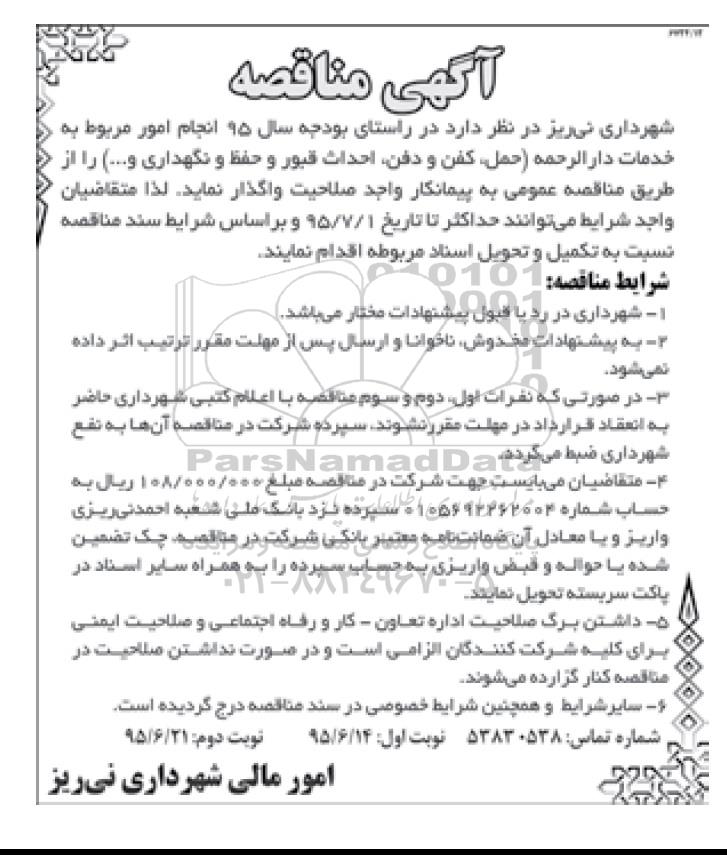 ۶۷۲۴/۱۲
آگهی مناقصه
شهرداری نی‌ریز در نظر دارد در راستای بودجه سال ۹۵ انجام امور مربوط به
خدمات دارالرحمه (حمل، کفن و دفن، احداث قبور و حفظ و نگهداری و...) را از
طریق مناقصه عمومی به پیمانکار واجد صلاحیت واگذار نماید. لذا متقاضیان
واجد شرایط می‌توانند حداکثر تا تاریخ ۹۵/۷/۱ و براساس شرایط سند مناقصه
نسبت به تکمیل و تحویل اسناد مربوطه اقدام نمایند.
شرایط مناقصه:
۱- شهرداری در رد یا قبول پیشنهادات مختار می‌باشد.
۲- به پیشنهادات مخدوش، ناخوانا و ارسال پس از مهلت مقرر ترتیب اثر داده
نمی‌شود.
۳- در صورتی که نفرات اول، دوم و سوم مناقصه با اعلام کتبی شهرداری حاضر
به انعقاد قرارداد در مهلت مقرر نشوند، سپرده شرکت در مناقصه آن‌ها به نفع
شهرداری ضبط می‌گردد.
ParsNamadData
۴- متقاضیان می‌بایست جهت شرکت در مناقصه مبلغ ۱۰۸/۰۰۰/۰۰۰ ریال به
حساب شماره ۰۱۰۵۶۹۲۲۶۲۰۰۴ سپرده نزد بانک ملی شعبه احمدنی‌ریزی
واریز و یا معادل آن ضمانت‌نامه معتبر بانکی شرکت در مناقصه، چک تضمین
شده یا حواله و قبض واریزی به حساب سپرده را به همراه سایر اسناد در
۰۲۱-۸۸۳۴۹۶۷۰-۵
پاکت سربسته تحویل نمایند.
۵- داشتن برگ صلاحیت اداره تعاون - کار و رفاه اجتماعی و صلاحیت ایمنی
برای کلیه شرکت کنندگان الزامی است و در صورت نداشتن صلاحیت در
مناقصه کنار گزارده می‌شوند.
۶- سایرشرایط و همچنین شرایط خصوصی در سند مناقصه درج گردیده است.
شماره تماس: ۵۳۸۳۰۵۳۸ نوبت اول: ۹۵/۶/۱۴ نوبت دوم: ۹۵/۶/۲۱
امور مالی شهرداری نی‌ریز